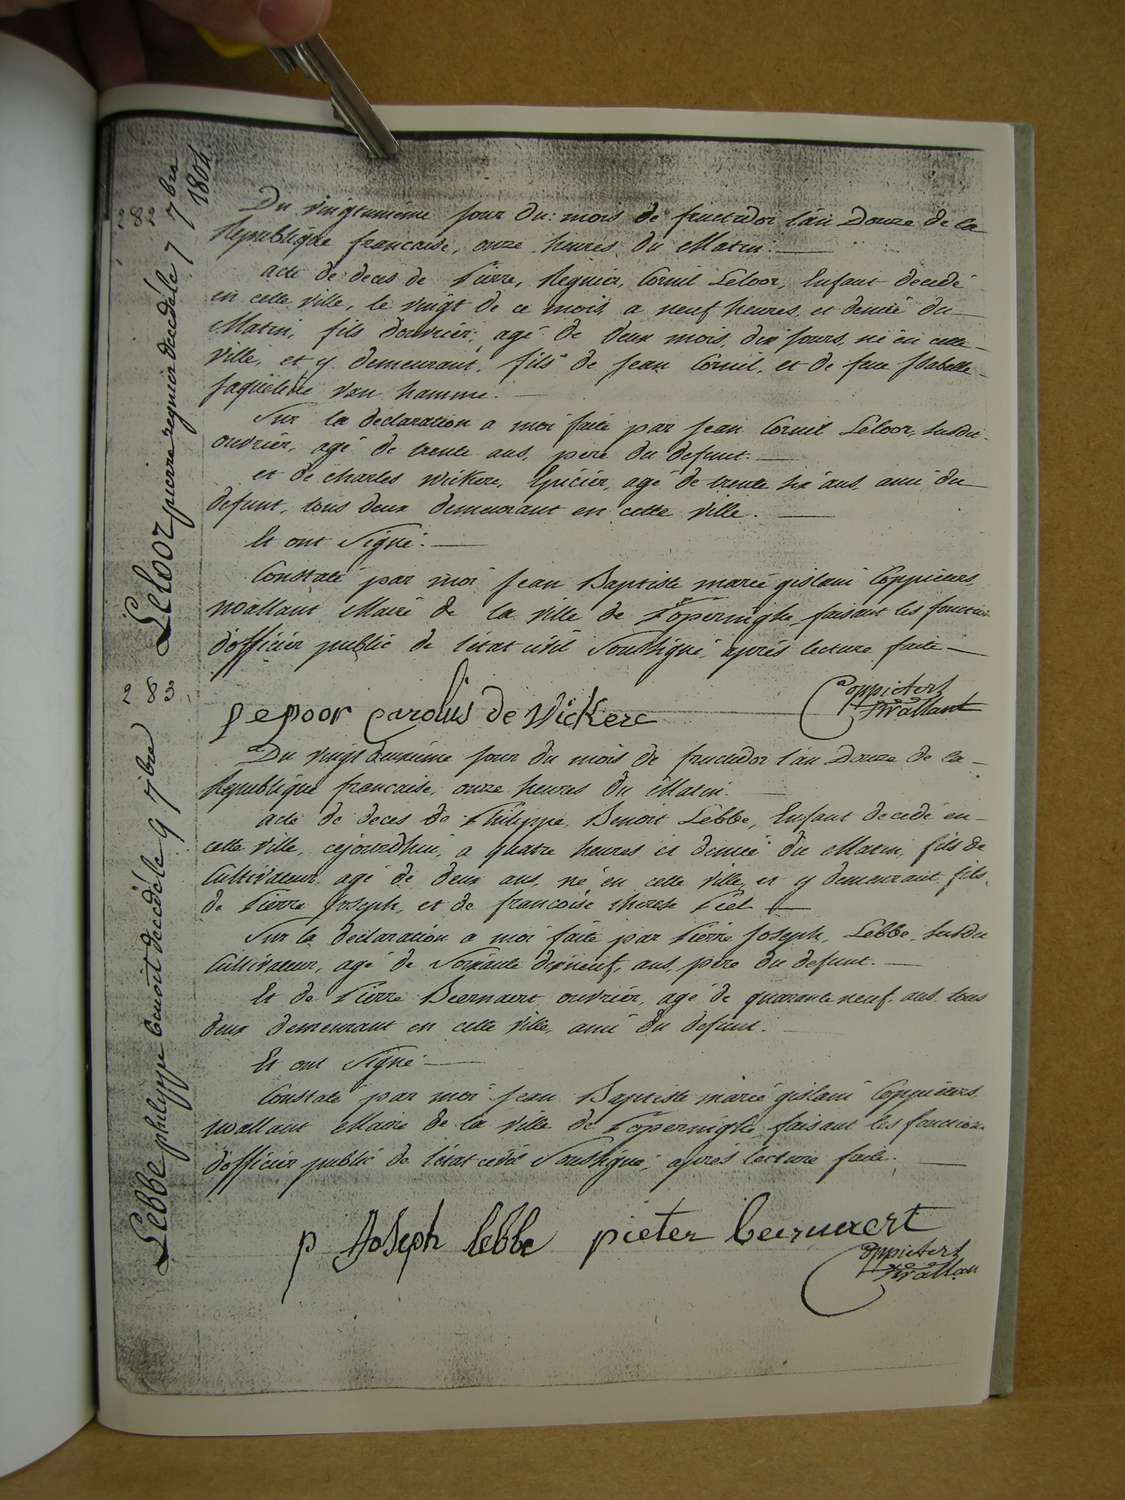 282
Leloor pierre regnier decédé le 7 7bre
1804
Du vingtunième jour du mois de fructidor l'an Douze de la
Republique francaise, onze heures du Matin.
acte de deces de Pierre, Regnier, Cornil Leloor, Enfant decedé
en cette ville, le vingt de ce mois, a neuf heures, et demie du
Matin, fils d'ouvrier, agé de deux mois, dix jours, né en cette
ville, et y demeurant, fils de Jean Cornil, et de feue Isabelle
Jaqueline Van hamme.
Sur la declaration a moi faite par Jean Cornil Leloor, susdit
ouvrier, agé de trente ans, pere du defunt.
et de charles Wickere, Epicier, agé de trente six ans, ami du
defunt, tous deux demeurant en cette ville.
Et ont Signé.
Constaté par moi Jean Baptiste marie gislain Coppieters
wallant Maire de la ville de Poperinghe, faisant les fonctions
d'officier public de l'état civil Soussigné, après lecture faite
carolus de Vickere
Coppieters
Twallant
283
Lebbe philippe benoit decédé le 9 7bre
Du vingt deuxième jour du mois de fructidor l'an Douze de la
Republique francaise, onze heures du Matin.
acte de deces de Philippe Benoit Lebbe, Enfant decedé en
cette ville, cejourdhui, a quatre heures et demie du Matin, fils de
Cultivateur, agé de deux ans, né en cette ville, et y demeurant, fils
de Pierre Joseph, et de francoise therese Piel
Sur la declaration a moi faite par Pierre Joseph, Lebbe, susdit
Cultivateur, agé de Soixante dixneuf, ans, pere du defunt.
Et de Pierre Beernaert, ouvrier, agé de quarante neuf, ans, tous
deux demeurant en cette ville, ami du defunt.
Et ont Signé
Constaté par moi Jean Baptiste marie gislain Coppieters
wallant Maire de la ville de Poperinghe, faisant les fonctions
d'officier public de l'état civil Soussigné, après lecture faite.
p Joseph lebbe pieter beernaert
Coppieters
Twallan